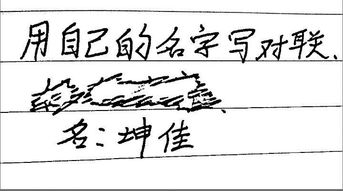 用自己的名字写对联.
名:坤佳